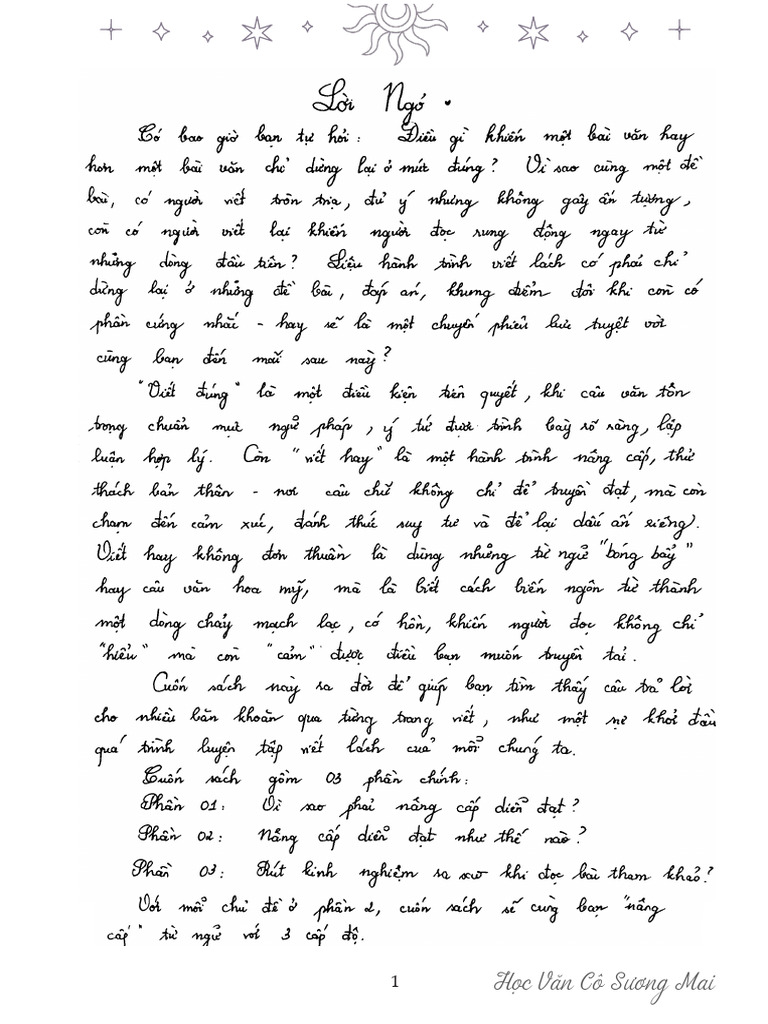 Lời Ngỏ
Có bao giờ bạn tự hỏi: Điều gì khiến một bài văn hay
hơn một bài văn chỉ dừng lại ở mức đúng? Vì sao cùng một đề
bài, có người viết tròn trịa, đủ ý nhưng không gây ấn tượng,
còn có người viết lại khiến người đọc rung động ngay từ
những dòng đầu tiên? Liệu hành trình viết lách có phải chỉ
dừng lại ở những đề bài, đáp án, khung điểm đôi khi còn có
phần cứng nhắc - hay sẽ là một chuyến phiêu lưu tuyệt vời
cùng bạn đến mãi sau này?
"Viết đúng" là một điều kiện tiên quyết, khi câu văn tôn
trọng chuẩn mực ngữ pháp, ý tứ được trình bày rõ ràng, lập
luận hợp lý. Còn "viết hay" là một hành trình nâng cấp, thử
thách bản thân - nơi câu chữ không chỉ để truyền đạt, mà còn
chạm đến cảm xúc, đánh thức suy tư và để lại dấu ấn riêng.
Viết hay không đơn thuần là dùng những từ ngữ "bóng bẩy"
hay câu văn hoa mỹ, mà là biết cách biến ngôn từ thành
một dòng chảy mạch lạc, có hồn, khiến người đọc không chỉ
"hiểu" mà còn "cảm" được điều bạn muốn truyền tải.
Cuốn sách này ra đời để giúp bạn tìm thấy câu trả lời
cho nhiều băn khoăn qua từng trang viết, như một sự khởi đầu
quá trình luyện tập viết lách của mỗi chúng ta.
Cuốn sách gồm 03 phần chính:
Phần 01: Vì sao phải nâng cấp diễn đạt?
Phần 02: Nâng cấp diễn đạt như thế nào?
Phần 03: Rút kinh nghiệm ra sao khi đọc bài tham khảo?
Với mỗi chủ đề ở phần 2, cuốn sách sẽ cùng bạn "nâng
cấp" từ ngữ với 3 cấp độ.
1
Học Văn Cô Sương Mai